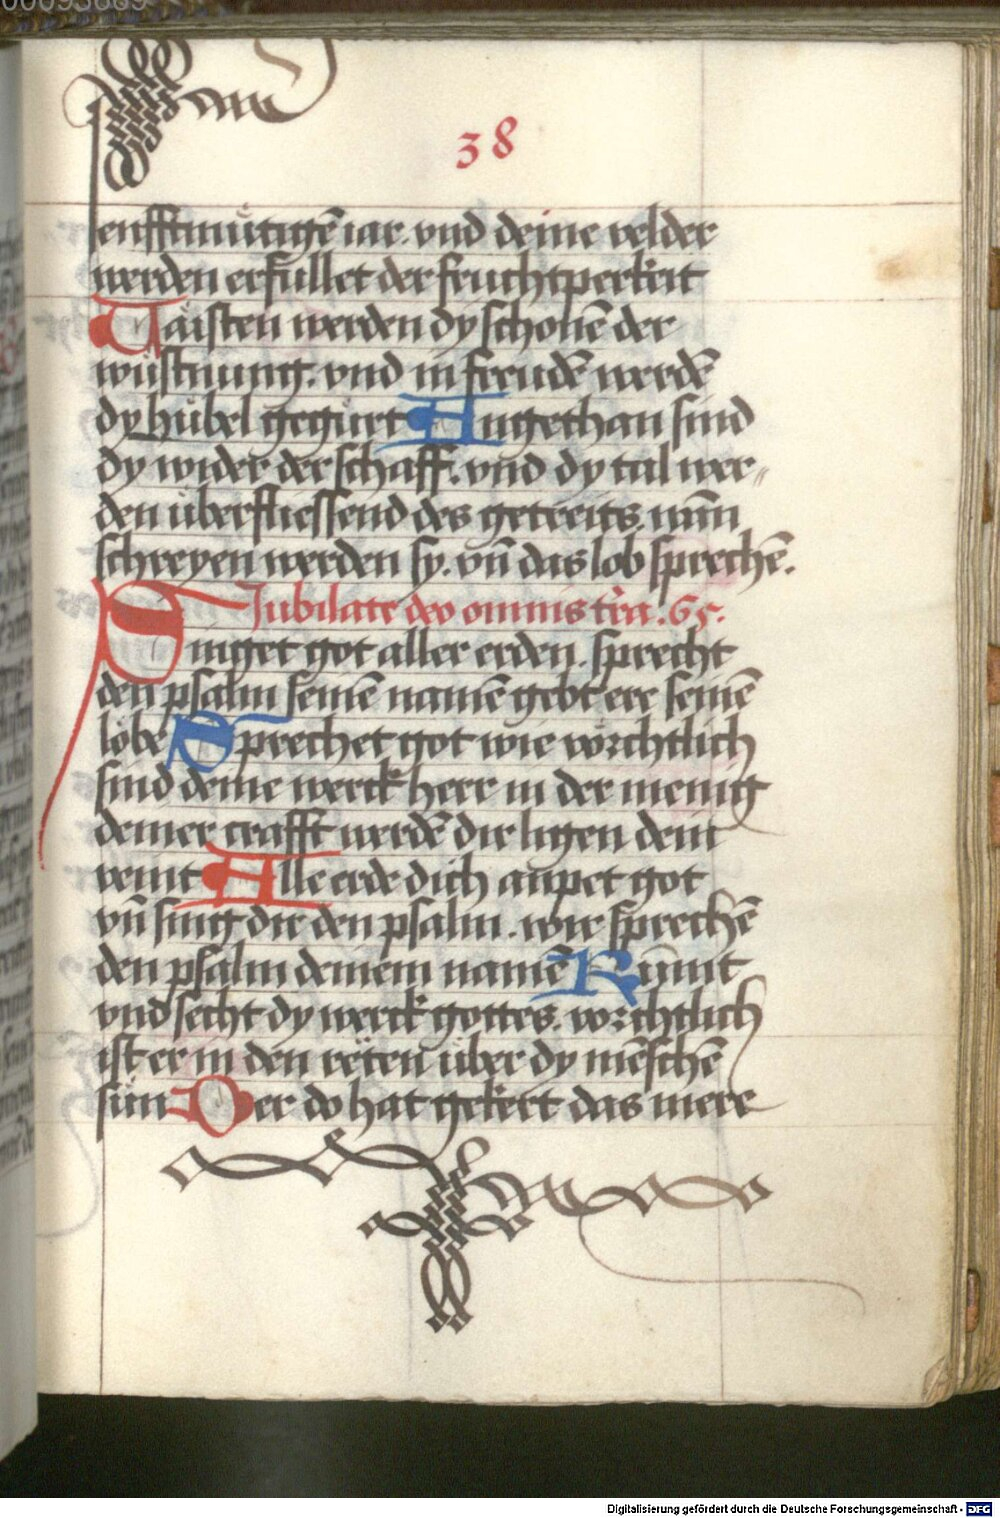 00095689
38
senfftmütigē iar. vnd deine velder
werden erfullet der fruchtperkeit
Uaisten werden dy schonē der
wüstnung. vnd in freudē werdē
dy hübel gegürt Angethan sind
dy wider der schaff. vnd dy tal wer„
den überfliessend des getreits. nūn
schreyen werden sy. vn̄ das lob sprechē.
Jubilate deo omnis t̄ra. 65.
Singet got aller erden. sprecht
den psalm seinē namē gebt ere seinē
lobe Sprechet got wie vorchtlich
sind deine werck herr in der menig
deiner crafft werdē dir ligen dein
veint Alle erde dich anpet got
vn̄ sing dir den psalm. wir sprechē
den psalm deinem namē Kūmt
vnd secht dy werck gottes. vorchtlich
ist er in den reten über dy mēschē
sün Der do hat gekert das mere
Digitalisierung gefördert durch die Deutsche Forschungsgemeinschaft - DFG